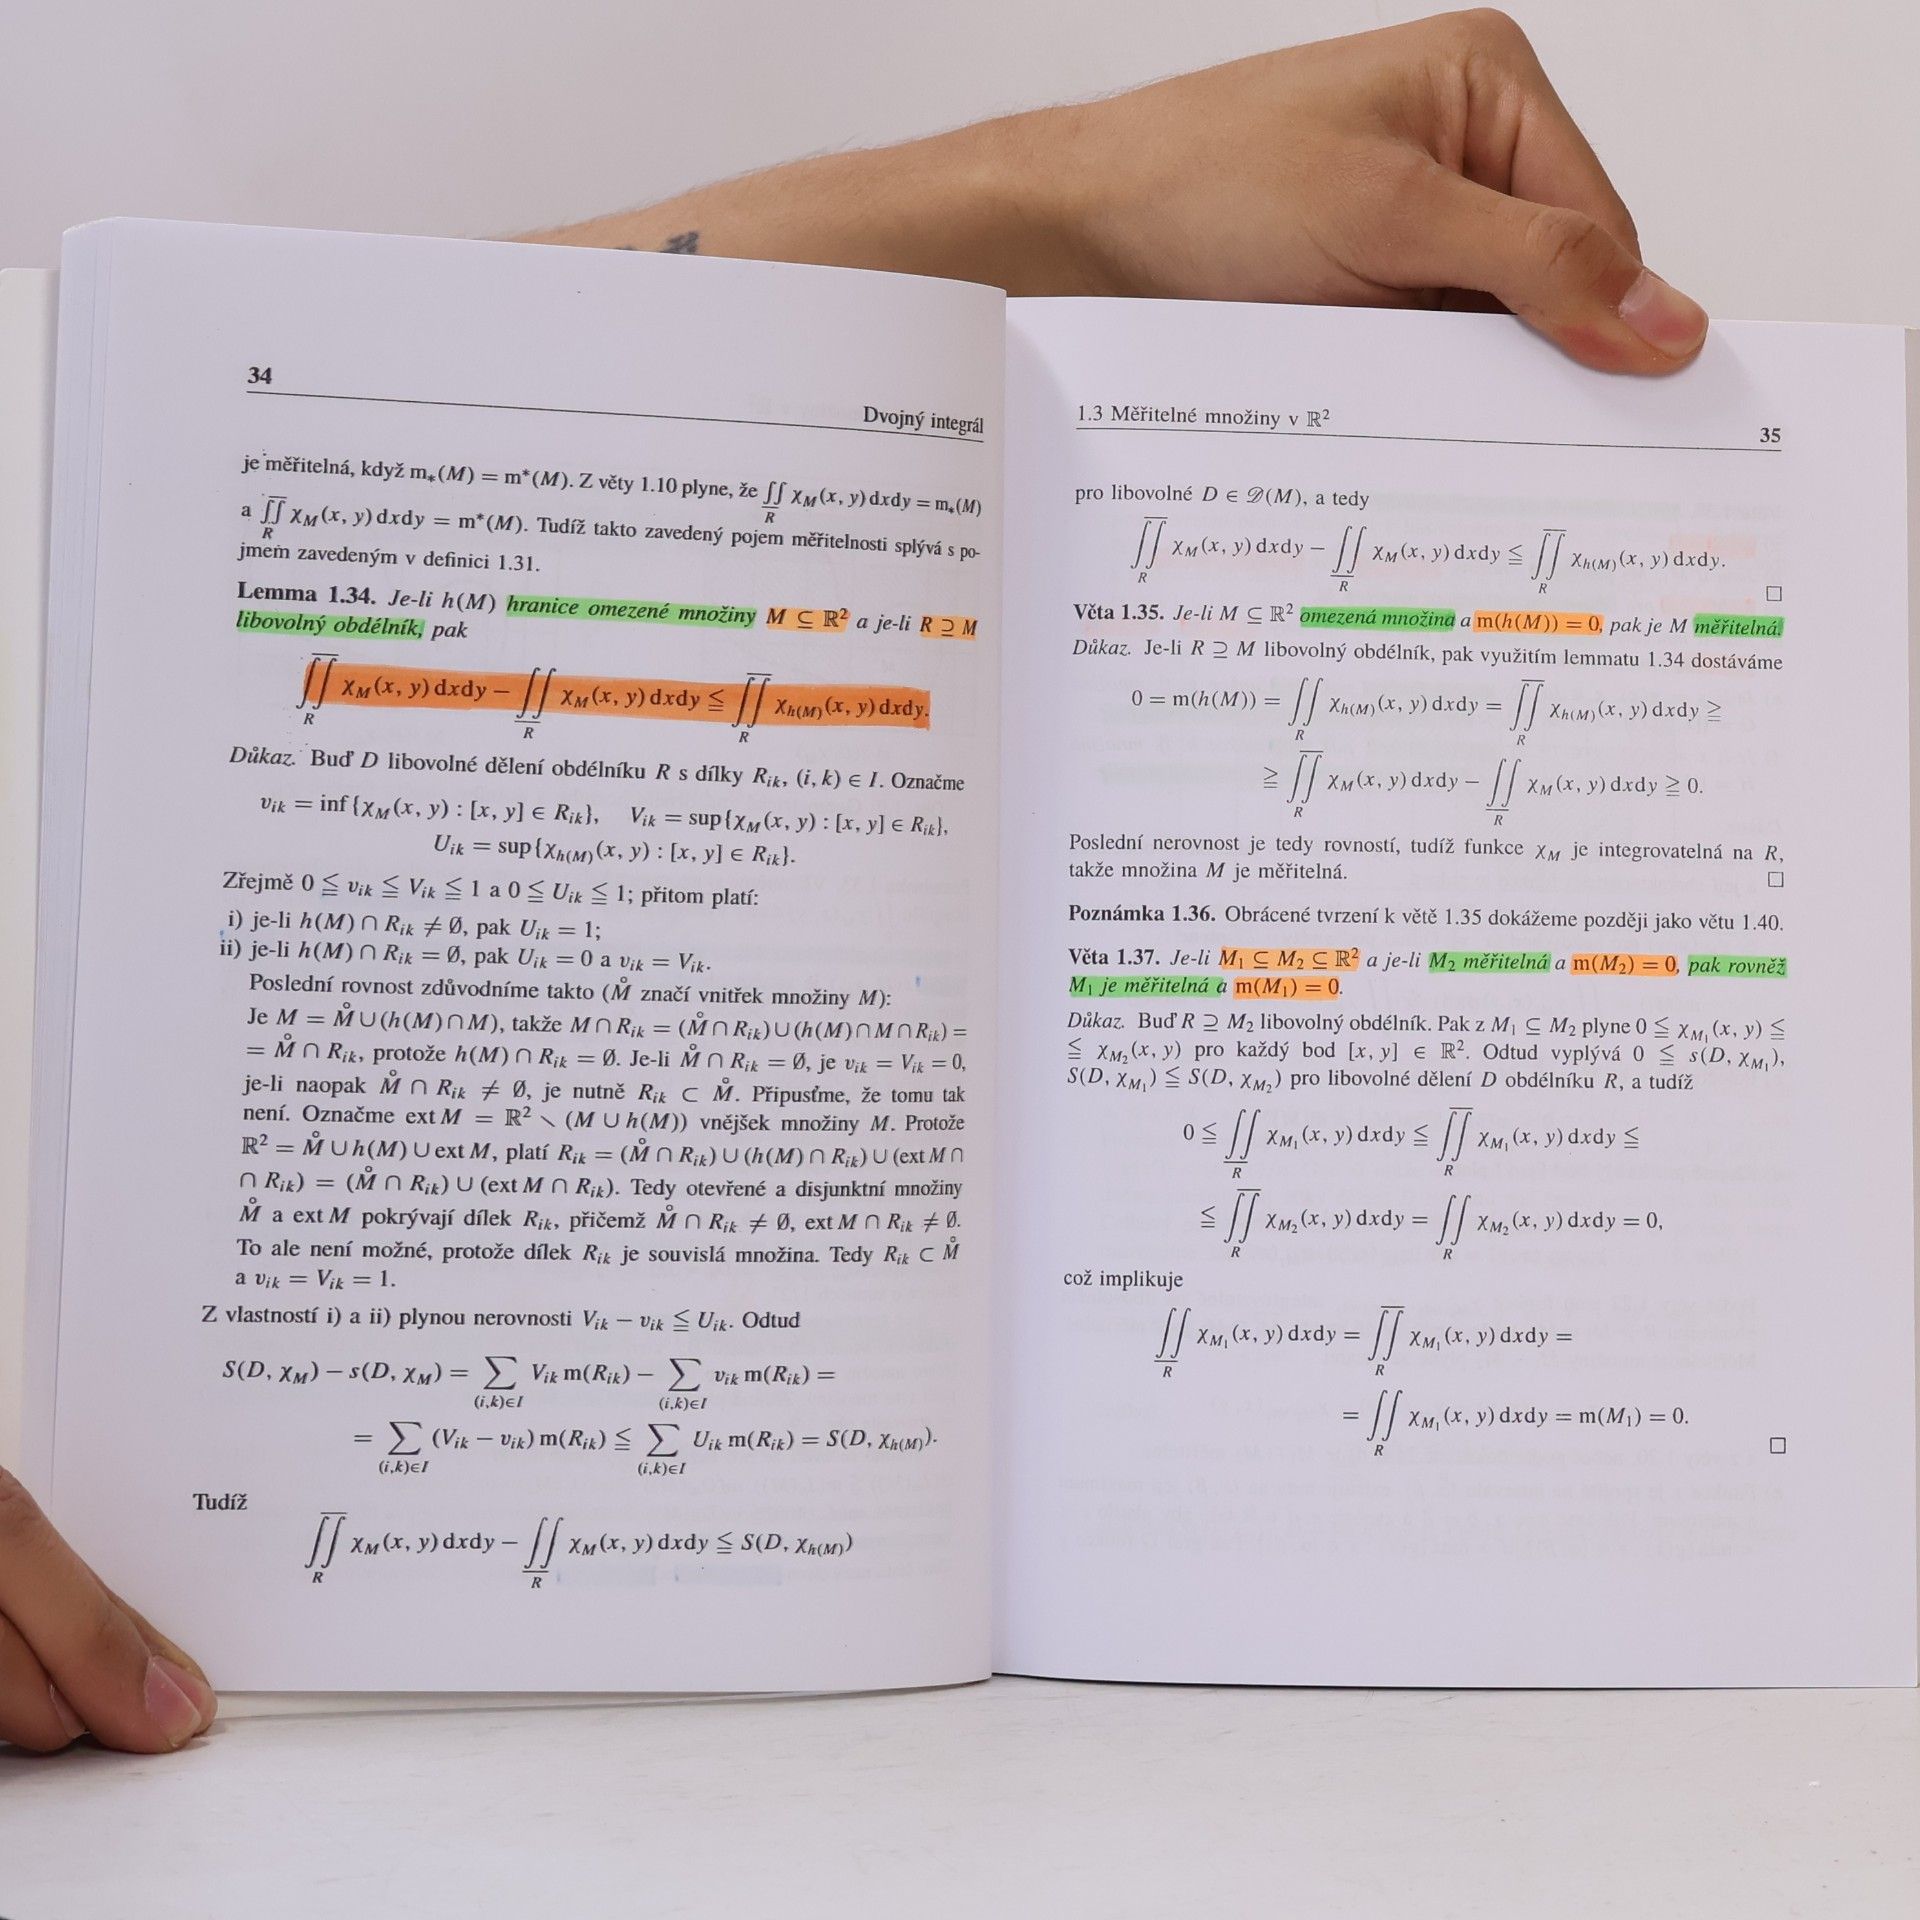 34
Dvojný integrál
je měřitelná, když m∗(M) = m*(M). Z věty 1.10 plyne, že ∬ χM(x, y) dxdy = m∗(M)
R
a ∬ χM(x, y) dxdy = m*(M). Tudíž takto zavedený pojem měřitelnosti splývá s po-
R
jmem zavedeným v definici 1.31.
Lemma 1.34. Je-li h(M) hranice omezené množiny M ⊆ ℝ² a je-li R ⊇ M
libovolný obdélník, pak
∬ χM(x, y) dxdy − ∬ χM(x, y) dxdy ≦ ∬ χh(M)(x, y) dxdy.
R R R
Důkaz. Buď D libovolné dělení obdélníku R s dílky Rik, (i, k) ∈ I. Označme
vik = inf{χM(x, y) : [x, y] ∈ Rik}, Vik = sup{χM(x, y) : [x, y] ∈ Rik},
Uik = sup{χh(M)(x, y) : [x, y] ∈ Rik}.
Zřejmě 0 ≦ vik ≦ Vik ≦ 1 a 0 ≦ Uik ≦ 1; přitom platí:
i) je-li h(M) ∩ Rik ≠ ∅, pak Uik = 1;
ii) je-li h(M) ∩ Rik = ∅, pak Uik = 0 a vik = Vik.
Poslední rovnost zdůvodníme takto (M̊ značí vnitřek množiny M):
Je M = M̊ ∪ (h(M) ∩ M), takže M ∩ Rik = (M̊ ∩ Rik) ∪ (h(M) ∩ M ∩ Rik) =
= M̊ ∩ Rik, protože h(M) ∩ Rik = ∅. Je-li M̊ ∩ Rik = ∅, je vik = Vik = 0,
je-li naopak M̊ ∩ Rik ≠ ∅, je nutně Rik ⊂ M̊. Připusťme, že tomu tak
není. Označme ext M = ℝ² ∖ (M ∪ h(M)) vnějšek množiny M. Protože
ℝ² = M̊ ∪ h(M) ∪ ext M, platí Rik = (M̊ ∩ Rik) ∪ (h(M) ∩ Rik) ∪ (ext M ∩
∩ Rik) = (M̊ ∩ Rik) ∪ (ext M ∩ Rik). Tedy otevřené a disjunktní množiny
M̊ a ext M pokrývají dílek Rik, přičemž M̊ ∩ Rik ≠ ∅, ext M ∩ Rik ≠ ∅.
To ale není možné, protože dílek Rik je souvislá množina. Tedy Rik ⊂ M̊
a vik = Vik = 1.
Z vlastností i) a ii) plynou nerovnosti Vik − vik ≦ Uik. Odtud
S(D, χM) − s(D, χM) = ∑ Vik m(Rik) − ∑ vik m(Rik) =
(i,k)∈I (i,k)∈I
= ∑ (Vik − vik) m(Rik) ≦ ∑ Uik m(Rik) = S(D, χh(M)).
(i,k)∈I (i,k)∈I
Tudíž
∬ χM(x, y) dxdy − ∬ χM(x, y) dxdy ≦ S(D, χh(M))
R R
1.3 Měřitelné množiny v ℝ²
35
pro libovolné D ∈ 𝒟(M), a tedy
∬ χM(x, y) dxdy − ∬ χM(x, y) dxdy ≦ ∬ χh(M)(x, y) dxdy.
R R R
□
Věta 1.35. Je-li M ⊆ ℝ² omezená množina a m(h(M)) = 0, pak je M měřitelná.
Důkaz. Je-li R ⊇ M libovolný obdélník, pak využitím lemmatu 1.34 dostáváme
0 = m(h(M)) = ∬ χh(M)(x, y) dxdy = ∬ χh(M)(x, y) dxdy ≧
R R
≧ ∬ χM(x, y) dxdy − ∬ χM(x, y) dxdy ≧ 0.
R R
Poslední nerovnost je tedy rovností, tudíž funkce χM je integrovatelná na R,
takže množina M je měřitelná. □
Poznámka 1.36. Obrácené tvrzení k větě 1.35 dokážeme později jako větu 1.40.
Věta 1.37. Je-li M1 ⊆ M2 ⊆ ℝ² a je-li M2 měřitelná a m(M2) = 0, pak rovněž
M1 je měřitelná a m(M1) = 0.
Důkaz. Buď R ⊇ M2 libovolný obdélník. Pak z M1 ⊆ M2 plyne 0 ≦ χM1(x, y) ≦
≦ χM2(x, y) pro každý bod [x, y] ∈ ℝ². Odtud vyplývá 0 ≦ s(D, χM1),
S(D, χM1) ≦ S(D, χM2) pro libovolné dělení D obdélníku R, a tudíž
0 ≦ ∬ χM1(x, y) dxdy ≦ ∬ χM1(x, y) dxdy ≦
R R
≦ ∬ χM2(x, y) dxdy = ∬ χM2(x, y) dxdy = 0,
R R
což implikuje
∬ χM1(x, y) dxdy = ∬ χM1(x, y) dxdy =
R R
= ∬ χM1(x, y) dxdy = m(M1) = 0.
R
□